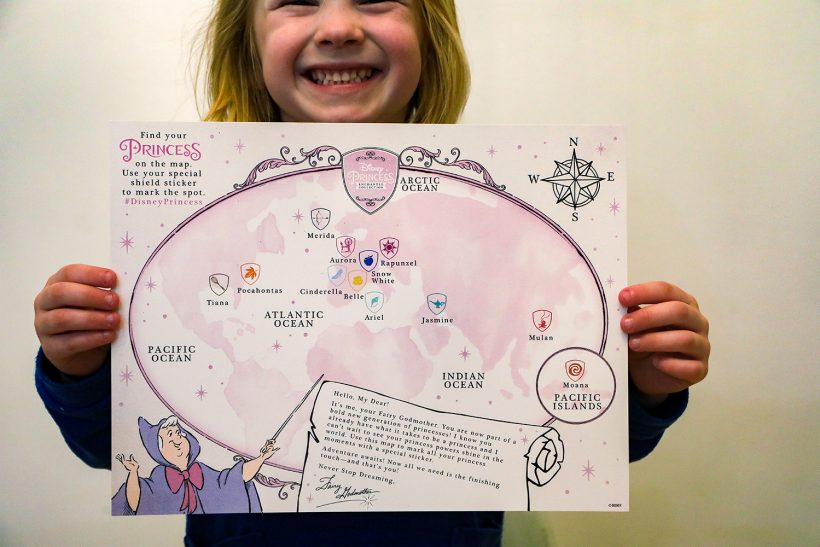 Find your
PRINCESS
on the map.
Use your special
shield sticker
to mark the spot.
#DisneyPrincess
Disney
PRINCESS
ARCTIC
OCEAN
N
W
E
S
Merida
Aurora
Rapunzel
Snow
White
Tiana
Pocahontas
Cinderella
Belle
Ariel
Jasmine
Mulan
ATLANTIC
OCEAN
PACIFIC
OCEAN
INDIAN
OCEAN
Moana
PACIFIC
ISLANDS
Hello, My Dear!
It's me, your Fairy Godmother. You are now part of a
bold new generation of princesses! I know you
already have what it takes to be a princess and I
can't wait to see your princess powers shine in the
world. Use this map to mark all your princess
moments with a special sticker.
Adventure awaits! Now all we need is the finishing
touch—and that's you!
Never Stop Dreaming,
Fairy Godmother